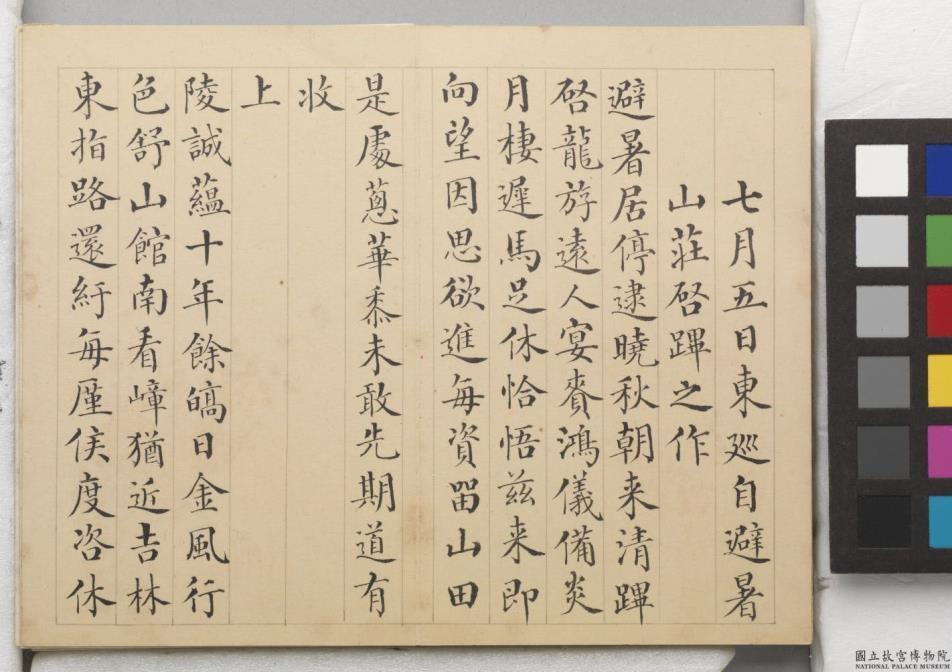 七月五日東廵自避暑
山莊啓蹕之作
避暑居停逮曉秋朝来清蹕
啓龍斿遠人宴賚鴻儀備炎
月棲遲馬足休恰悟兹来即
向望因思欲進每資畱山田
是處蔥華黍未敢先期道有
收
上
陵誠蘊十年餘皜日金風行
色舒山館南看嶂猶近吉林
東指路還紆每廑侯度咨休
國立故宮博物院
NATIONAL PALACE MUSEUM